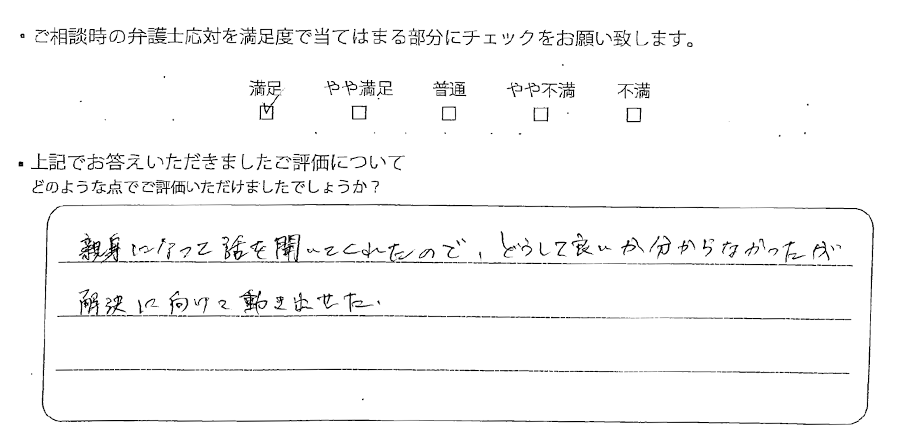 ・ご相談時の弁護士応対を満足度で当てはまる部分にチェックをお願い致します。
満足 やや満足 普通 やや不満 不満
☑ □ □ □ □
・上記でお答えいただきましたご評価について
どのような点でご評価いただけましたでしょうか？
親身になって話を聞いてくれたので、どうして良いか分からなかったが
解決に向けて動き出せた。